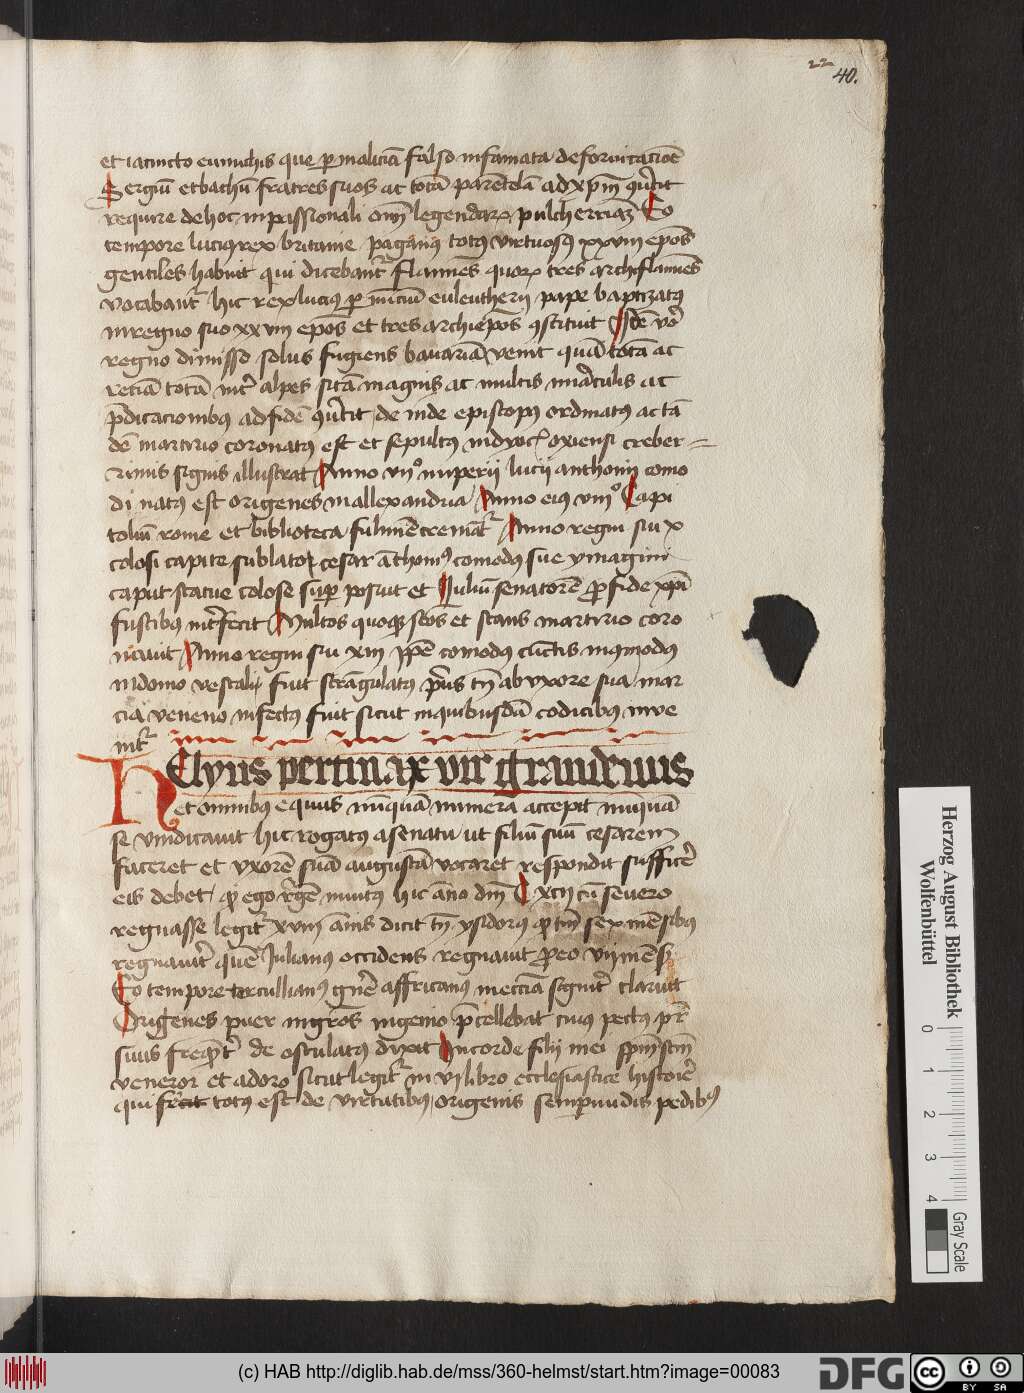 22
40.
et iacincto eunuchis que p maliciā falso infamata de fornicacioē
Sergiū et bachū fratres suos ac totā parētelā ad xpm ꝯu͛tit
require de hoc in passionali om̄ legendaꝝ pulcherriaꝫ Eo
tempore lucius rex britanie paganꝰ totꝰ virtuosꝰ xxviii epōs
gentiles habuit qui dicebant͛ flamēs quoꝝ tres archiflamēs
vocabant͛ hic rex lucius p nūciū euleutherij pape baptizatꝰ
in regno suo xxviii epōs et tres archiepōs ꝯstituit Idē vo͛
regno dimisso solus fugiens bauariā venit quā totā ac
retiā totā int͛ alpes sitā magnis ac multis miraculis ac
p̄dicacionibꝰ ad fidē ꝯu͛tit de inde episcopꝰ ordinatꝰ ac tā
dē martirio coronatus est et sepultꝰ in dyoc͛ oxiensi creber
rimis signis illustrat Anno vii⁰ imperii lucii anthonii como
di natus est origenes in allexandria Anno eiꝰ viii⁰ Capi
toliū rome et biblioteca fulmīe cremat͛ Anno regni sui x
colosi capite sublato cesar āthoniꝰ comodꝰ sue ymagini
caput statue colose sup posuit et Iuliū senatorē ꝓ fide xpi
fustibꝰ int͛fecit Multos quoqꝫ sc̄os et sc̄ans martirio coro
nauit Anno regni sui xiii ip̄e comodꝰ cūctis inꝯmodꝰ
in domo vestali fuit strāgulatꝰ p̄us tn̄ ab vxore sua mar
cia veneno infectus fuit sicut in quibusdā codicibꝰ inve
nit͛
Helyus pertinax vir grandeuus
et omnibꝰ equus nūquā munera accepit nūquā
se vindicauit hic rogatꝰ a senatu ut filiū suū cesarem
faceret et vxorē suā augustā vocaret respondit suffice͛
eis debet qꝫ ego r͛gē inuitꝰ hic āno dm̄ Cxcij cū seuero
regnasse legit͛ xviii ānis dicit tn̄ ysidorꝰ qꝫ tm̄ sex mēsibus
regnauit͛ quē Iulianus occidens regnauit ꝓ eo vij mēsi
Eo tempore tercullianꝰ gn͛e affricanus mecciā signit͛ claruit
Origenes puer nigros ingenio p̄cellebat cuiꝰ pectus pr͛
suus freqn̄t͛ de osculatus dixit In corde filij mei spm̄ sc̄m
veneror et adoro sicut legit͛ in vi libro ecclesiastice histori͛e
qui totꝰ est de virtutibꝰ origenis semp nudis pedibꝰ
Herzog August Bibliothek
Wolfenbüttel
0 1 2 3 4
Gray Scale
(c) HAB http://diglib.hab.de/mss/360-helmst/start.htm?image=00083
DFG
cc BY SA